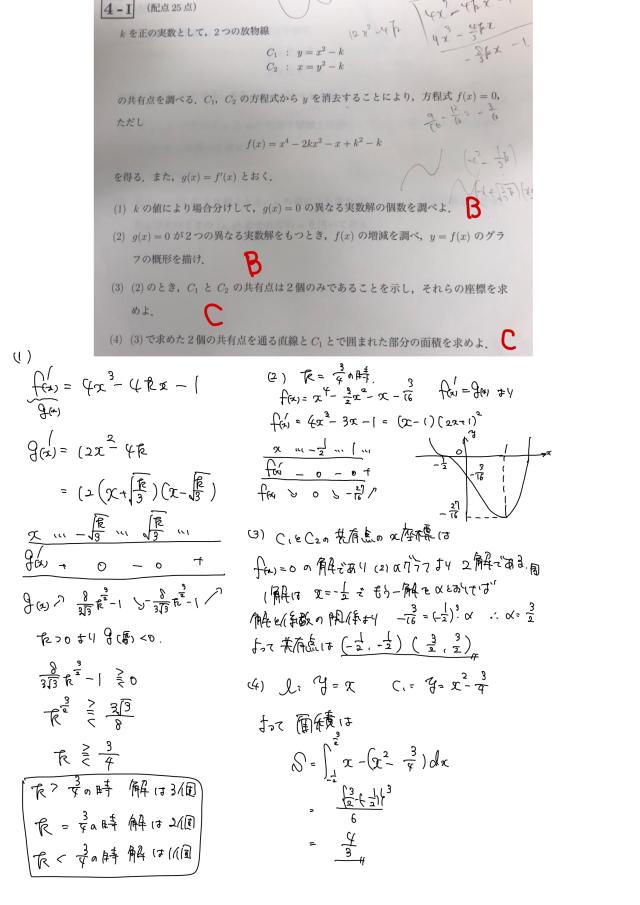 4-1 (配点25点)
kを正の実数として,2つの放物線
C₁ : y = x² − k
C₂ : x = y² − k
の共有点を調べる.C₁, C₂ の方程式から y を消去することにより,方程式 f(x) = 0,
ただし
f(x) = x⁴ − 2kx² − x + k² − k
を得る.また,g(x) = f′(x) とおく.
(1) k の値により場合分けして,g(x) = 0 の異なる実数解の個数を調べよ. B
(2) g(x) = 0 が2つの異なる実数解をもつとき,f(x) の増減を調べ,y = f(x) のグラ
フの概形を描け. B
(3) (2)のとき,C₁ と C₂ の共有点は2個のみであることを示し,それらの座標を求
めよ. C
(4) (3)で求めた2個の共有点を通る直線と C₁ とで囲まれた部分の面積を求めよ. C
12x²−4k
(1)
f′(x) = 4x³ − 4kx − 1
g(x)
g′(x) = 12x² − 4k
= 12(x+√(k/3))(x−√(k/3))
x … −√(k/3) … √(k/3) …
g′(x) + 0 − 0 +
g(x) ↗ 8/(3√3) k^(3/2) −1 ↘ −8/(3√3) k^(3/2) −1 ↗
k>0 より g(√(k/3)) < 0.
8/(3√3) k^(3/2) − 1 ⪌ 0
k^(3/2) ⪌ 3√3/8
k ⪌ 3/4
k > 3/4 の時 解は3個
k = 3/4 の時 解は2個
k < 3/4 の時 解は1個
(2) k = 3/4 の時.
f(x) = x⁴ − 3/2 x² − x − 3/16 f′(x) = g(x) より
f′(x) = 4x³ − 3x − 1 = (x−1)(2x+1)²
x … −1/2 … 1 …
f′(x) − 0 − 0 +
f(x) ↘ 0 ↘ −27/16 ↗
y
−1/2 0 1 x
−3/16
−27/16
(3) C₁とC₂の共有点のx座標は
f(x)=0 の解であり (2)のグラフより 2解である.
1解は x=−1/2 で もう一解をαとおけば
解と係数の関係より −3/16 = (−1/2)³·α ∴ α = 3/2
よって共有点は (−1/2, −1/2) (3/2, 3/2)
(4) l: y = x C₁ = y = x² − 3/4
よって 面積は
S = ∫_{−1/2}^{3/2} x − (x² − 3/4) dx
= {3/2−(−1/2)}³/6
= 4/3